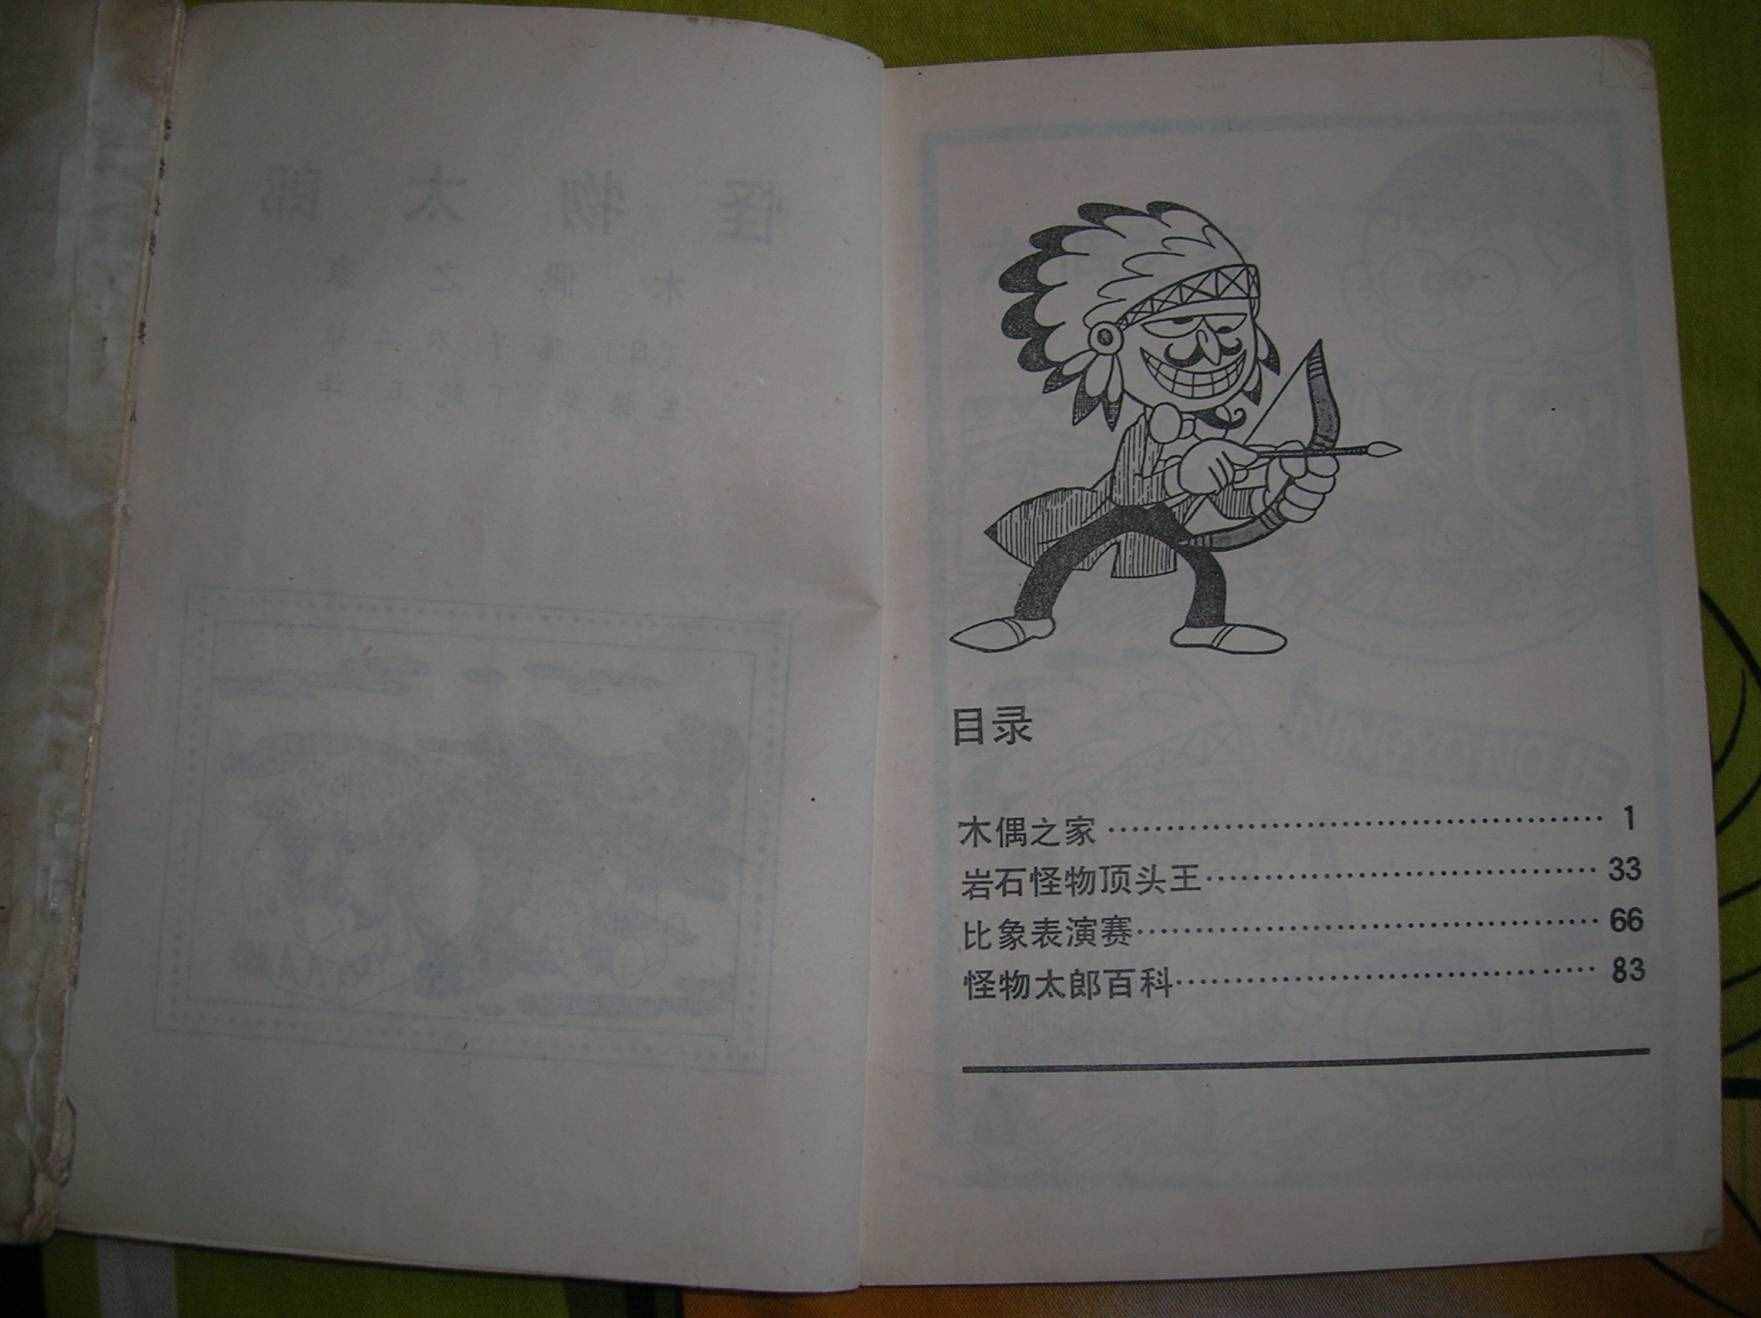 怪物太郎
木偶之家
目录
木偶之家 1
岩石怪物顶头王 33
比象表演赛 66
怪物太郎百科 83